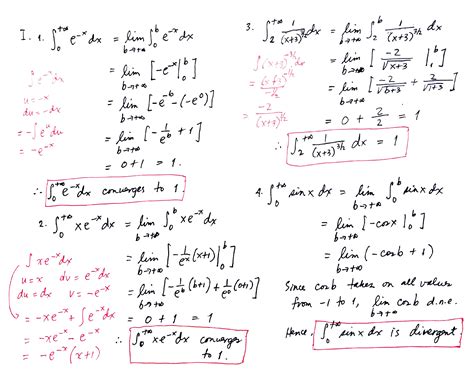 I. 1. ∫₀^{+∞} e^{-x} dx = lim_{b→+∞} ∫₀^b e^{-x} dx
= lim_{b→+∞} [-e^{-x} |₀^b]
= lim_{b→+∞} [-e^{-b} - (-e^0)]
= lim_{b→+∞} [-1/e^b + 1]
= 0 + 1 = 1.
∫ e^{-x} dx
u = -x
du = -dx
= -∫ e^u du
= -e^{-x}
∴ ∫₀^{+∞} e^{-x} dx converges to 1.
2. ∫₀^{+∞} xe^{-x} dx = lim_{b→+∞} ∫₀^b xe^{-x} dx
= lim_{b→+∞} [-1/e^x (x+1) |₀^b]
= lim_{b→+∞} [-1/e^b (b+1) + 1/e^0 (0+1)]
= 0 + 1 = 1
∫ xe^{-x} dx
u = x dv = e^{-x} dx
du = dx v = -e^{-x}
= -xe^{-x} + ∫ e^{-x} dx
= -xe^{-x} - e^{-x}
= -e^{-x} (x+1)
∴ ∫₀^{+∞} xe^{-x} dx converges to 1.
3. ∫₂^{+∞} 1/(x+3)^{3/2} dx = lim_{b→+∞} ∫₂^b 1/(x+3)^{3/2} dx
= lim_{b→+∞} [-2/√(x+3) |₁^b]
= lim_{b→+∞} [-2/√(b+3) + 2/√(1+3)]
= 0 + 2/2 = 1
∴ ∫₂^{+∞} 1/(x+3)^{3/2} dx = 1
4. ∫₀^{+∞} sinx dx = lim_{b→+∞} ∫₀^b sinx dx
= lim_{b→+∞} [-cosx |₀^b]
= lim_{b→+∞} (-cosb + 1)
Since cosb takes on all values
from -1 to 1, lim_{b→+∞} cosb d.n.e.
Hence, ∫₀^{+∞} sinx dx is divergent.